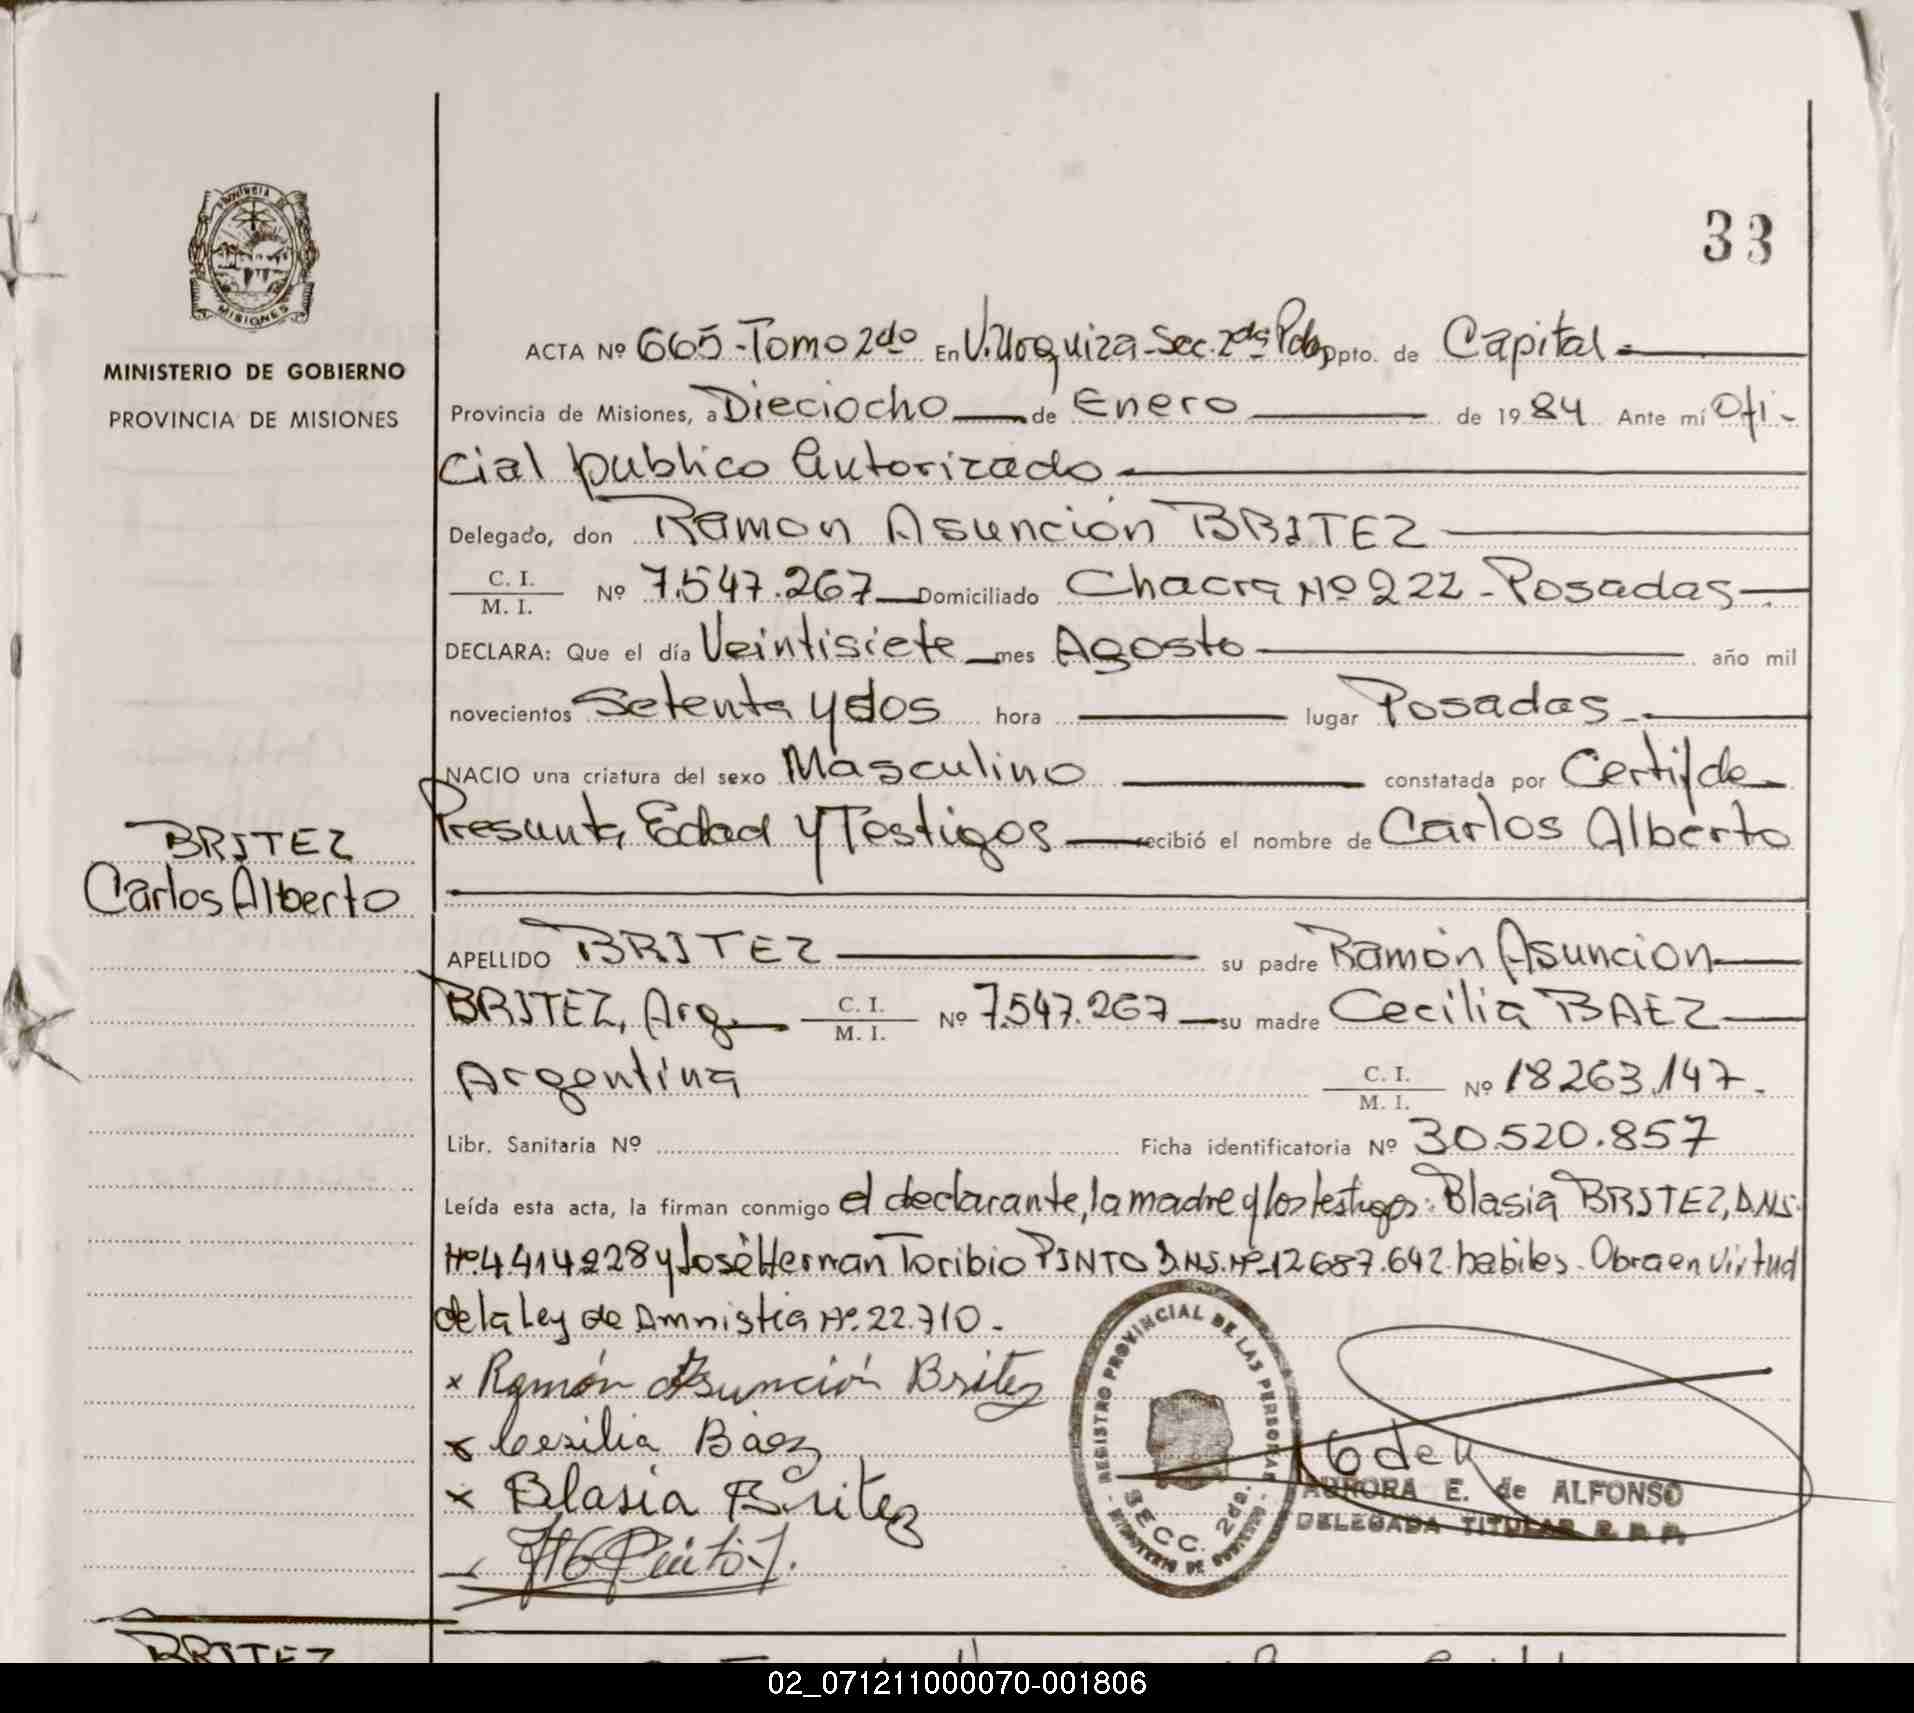 33
PROVINCIA DE
MISIONES
MINISTERIO DE GOBIERNO
PROVINCIA DE MISIONES
ACTA Nº 665-Tomo 2do En V.Urquiza-Sec.2da Pdas Dpto. de Capital
Provincia de Misiones, a Dieciocho de Enero de 1984 Ante mí Ofi-
cial publico Autorizado
Delegado, don Ramon Asunción BRITEZ
C. I.
M. I. Nº 7.547.267 Domiciliado Chacra Nº 222 - Posadas
DECLARA: Que el día Veintisiete mes Agosto año mil
novecientos Setenta y dos hora lugar Posadas
NACIO una criatura del sexo Masculino constatada por Certif de
Presunta Edad y Testigos recibió el nombre de Carlos Alberto
BRITEZ
Carlos Alberto
APELLIDO BRITEZ su padre Ramón Asuncion
BRITEZ, Arg. C. I.
M. I. Nº 7.547.267 su madre Cecilia BAEZ
Argentina C. I.
M. I. Nº 18263.147.
Libr. Sanitaria Nº Ficha identificatoria Nº 30.520.857
Leída esta acta, la firman conmigo el declarante, la madre y los testigos: Blasia BRITEZ, D.N.I.
Nº 4414228 y José Hernan Toribio PINTO D.N.I. Nº 12687.642 habiles. Obra en virtud
de la Ley de Amnistia Nº. 22.710.
x Ramón Asunción Britez
x Cesilia Báez
x Blasia Britez
REGISTRO PROVINCIAL DE LAS PERSONAS
SECC. 2da.
MINISTERIO DE GOBIERNO
AURORA E. de ALFONSO
DELEGADA TITULAR R. P. P.
BRITEZ
02_071211000070-001806